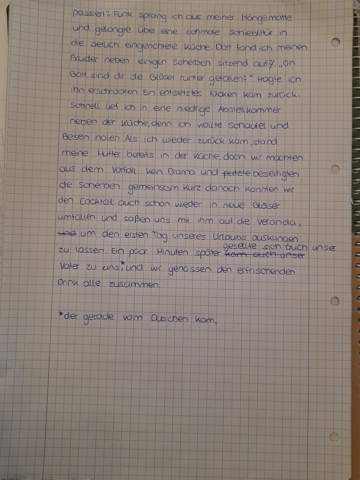 passiert? Flink sprang ich aus meiner Hängematte
und gelangte über eine schmale Schiebetür in
die liebevoll eingerichtete Küche. Dort fand ich meinen
Bruder neben einigen Scherben sitzend auf. "Oh
Gott, sind dir die Gläser runter gefallen?" fragte ich
ihn erschrocken. Ein entsetztes Nicken kam zurück.
Schnell lief ich in eine niedrige Abstellkammer
neben der Küche, denn ich wollte Schaufel und
Besen holen. Als ich wieder zurück kam, stand
meine Mutter bereits in der Küche, doch wir machten
aus dem Vorfall kein Drama und putzte beseitigten
die Scherben gemeinsam. Kurz danach konnten wir
den Cocktail auch schon wieder in neue Gläser
umfüllen und saßen uns mit ihm auf die Veranda,
und um den ersten Tag unseres Urlaubs ausklingen
zu lassen. Ein paar Minuten später gesellte sich auch unser
kam auch unser
Vater zu uns,* und wir genossen den erfrischenden
Drink alle zusammen.
*der gerade vom Duschen kam,